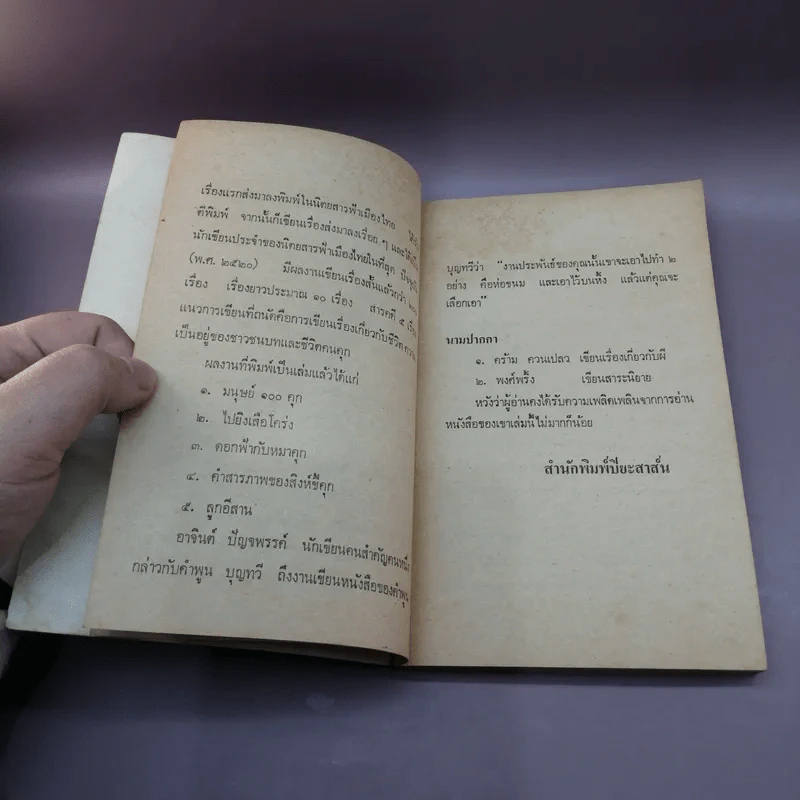 เรื่องแรกส่งมาลงพิมพ์ในนิตยสารฟ้าเมืองไทย
ตีพิมพ์ จากนั้นก็เขียนเรื่องส่งมาลงเรื่อย ๆ และได้
นักเขียนประจำของนิตยสารฟ้าเมืองไทยในที่สุด
(พ.ศ. ๒๕๒๐) มีผลงานเขียนเรื่องสั้นแล้วกว่า ๒๐๐
เรื่อง เรื่องยาวประมาณ ๑๐ เรื่อง สารคดี ๕ เรื่อง
แนวการเขียนที่ถนัดคือการเขียนเรื่องเกี่ยวกับชีวิต
เป็นอยู่ของชาวชนบทและชีวิตคนคุก
ผลงานที่พิมพ์เป็นเล่มแล้วได้แก่
๑. มนุษย์ ๑๐๐ คุก
๒. ไปยิงเสือโคร่ง
๓. ดอกฟ้ากับหมาคุก
๔. คำสารภาพของสิงห์ขี้คุก
๕. ลูกอีสาน
อาจินต์ ปัญจพรรค์ นักเขียนคนสำคัญคนหนึ่ง
กล่าวกับคำพูน บุญทวี ถึงงานเขียนหนังสือของคำพูน
บุญทวีว่า "งานประพันธ์ของคุณนั้นเขาจะเอาไปทำ ๒
อย่าง คือห่อขนม และเอาไว้บนหิ้ง แล้วแต่คุณจะ
เลือกเอา"
นามปากกา
๑. คร้าม ควนเปลว เขียนเรื่องเกี่ยวกับผี
๒. พงศ์พริ้ง เขียนสาระนิยาย
หวังว่าผู้อ่านคงได้รับความเพลิดเพลินจากการอ่าน
หนังสือของเขาเล่มนี้ไม่มากก็น้อย
สำนักพิมพ์ปิยะสาส์น